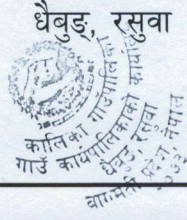 धैबुङ, रसुवा
कालिका गाउँपालिका
गाउँ कार्यपालिकाको कार्यालय
धैबुङ, रसुवा
बागमती प्रदेश, नेपाल